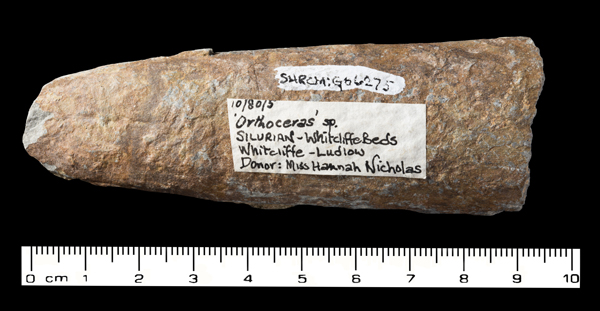 SHRCM:G06275
10/80/5
'Orthoceras' sp.
SILURIAN-Whitcliffe Beds
Whitcliffe-Ludlow
Donor: Miss Hannah Nicholas
0 cm 1 2 3 4 5 6 7 8 9 10